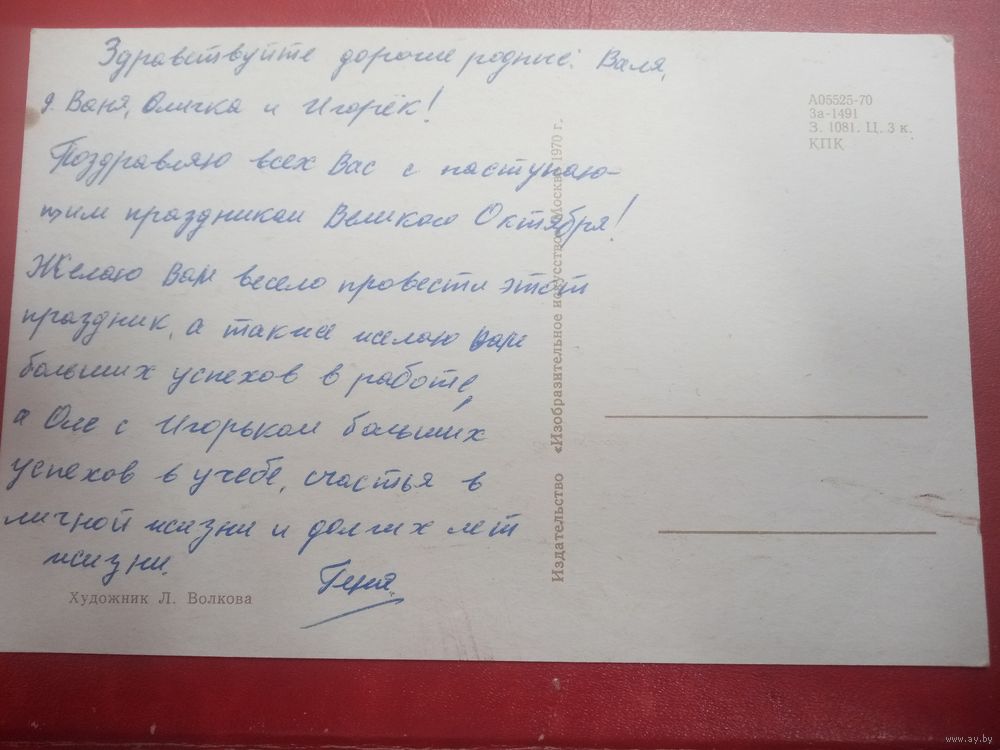 Здравствуйте дорогие родные: Валя,
д. Ваня, Оличка и Игорёк!
Поздравляю всех Вас с наступаю-
щим праздником Великого Октября!
Желаю Вам весело провести этот
праздник, а также желаю Вам
больших успехов в работе,
а Оле с Игорьком больших
успехов в учебе, счастья в
личной жизни и долгих лет
жизни.
Геня.
Художник Л. Волкова
Издательство «Изобразительное искусство». Москва. 1970 г.
А05525-70
За-1491
З. 1081. Ц. 3 к.
КПК
www.ay.by